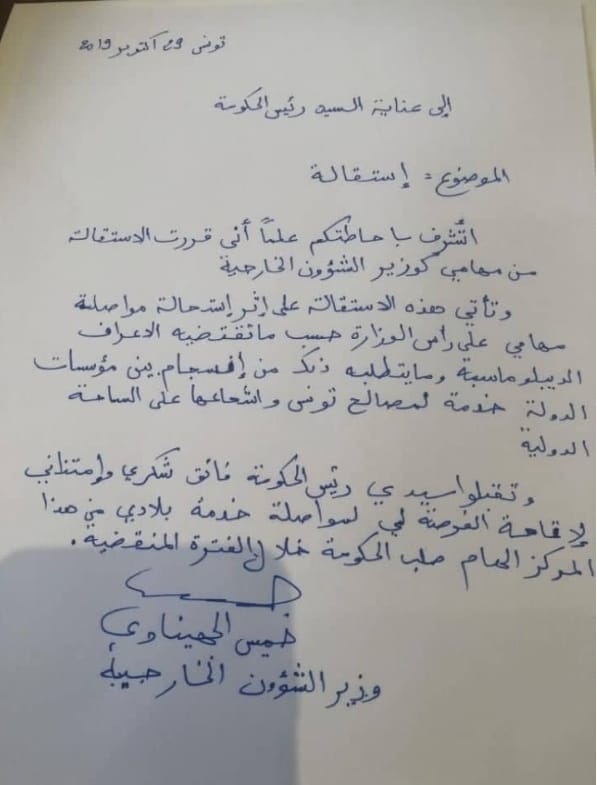 تونس 29 اكتوبر 2019
إلى عناية السيد رئيس الحكومة
الموضوع: إستقالة
اتشرف باحاطتكم علماً أني قررت الاستقالة
من مهامي كوزير الشؤون الخارجية
وتأتي هذه الاستقالة على إثر إستحالة مواصلة
مهامي على رأس الوزارة حسب ماتقتضيه الاعراف
الديبلوماسية ومايتطلبه ذلك من إنسجام بين مؤسسات
الدولة خدمة لمصالح تونس واشعاعها على الساحة
الدولية
وتقبلوا سيدي رئيس الحكومة فائق شكري وإمتناني
لإتاحة الفرصة لي لمواصلة خدمة بلادي من هذا
المركز الهام صلب الحكومة خلال الفترة المنقضية.
خميس الجهيناوي
وزير الشؤون الخارجية